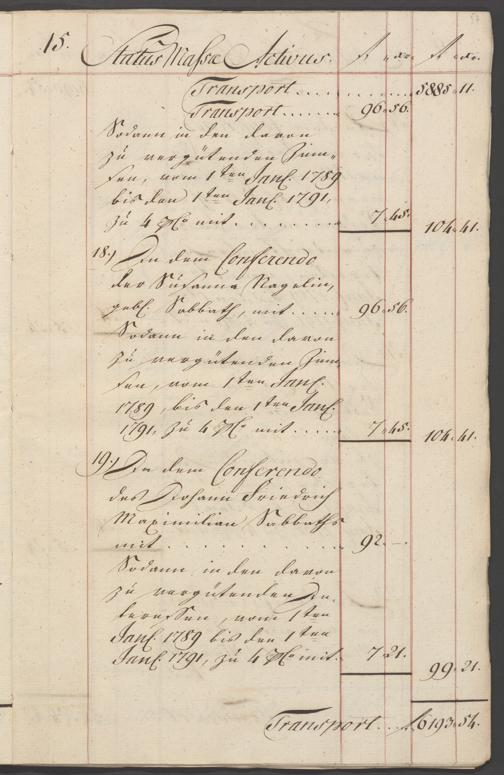 15. Status Massæ Activus. f. xr. f. xr.
Transport . . . . . . . . . . 5885. 11.
Transport . . . . . 96. 56.
Sodann in den davon
zu vergütenden Zinn-
sen, vom 1ten Janr. 1789
bis den 1ten Janr. 1791,
zu 4 pCo mit . . . . . . 7. 45.
104. 41.
18.) In dem Conferendo
der Susanna Nagelin,
gebl. Sabbath, mit . . . . 96. 56.
Sodann in den davon
zu vergütenden Zinn-
sen, vom 1ten Janr.
1789, bis den 1ten Janr.
1791, zu 4 pCo mit . . . . 7. 45.
104. 41.
19.) In dem Conferendo
des Johann Friedrich
Maximilian Sabbaths
mit . . . . . . . . . . 92. —
Sodann in den davon
zu vergütenden In-
teressen, vom 1ten
Janr. 1789 bis den 1ten
Janr. 1791, zu 4 pCo mit. 7. 21.
99. 21.
Transport . . f. 6193. 54.